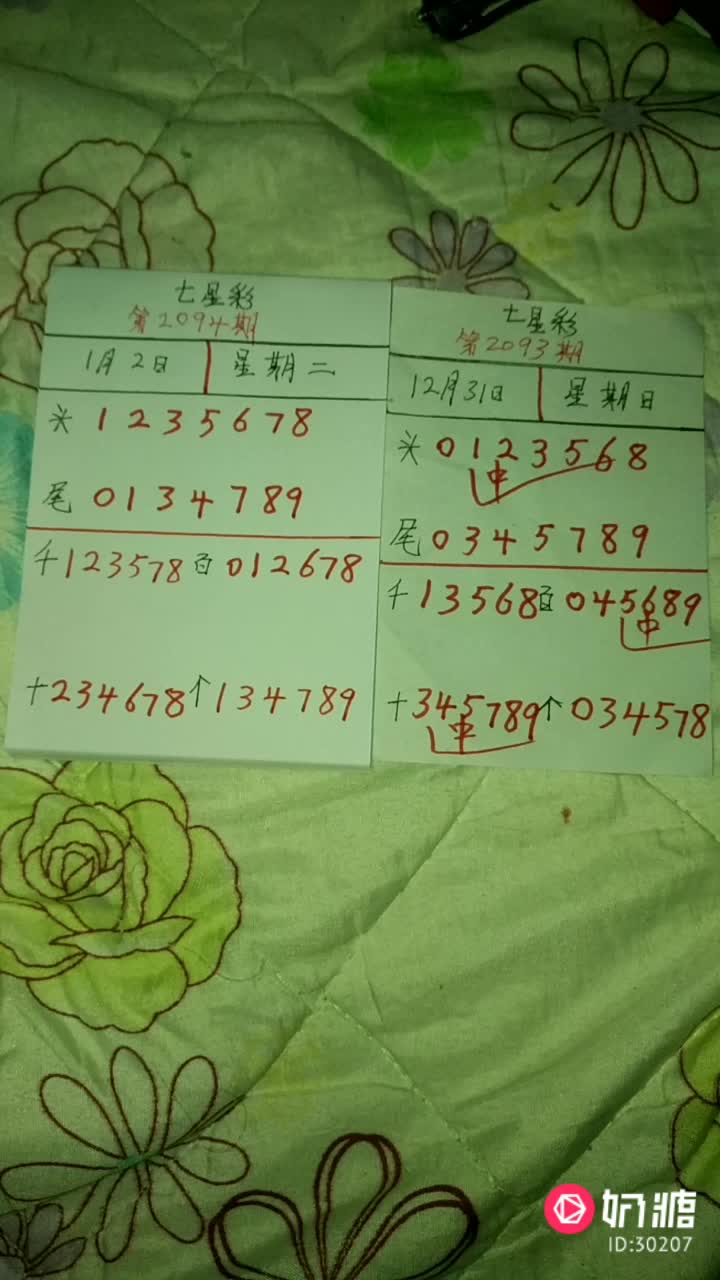 七星彩
第2094期
1月2日 星期二
头 1235678
尾 0134789
千123578百012678
十234678个134789
七星彩
第2093期
12月31日 星期日
头 0123568
中
尾 0345789
千13568百045689
中
十345789个034578
中
奶糖
ID:30207